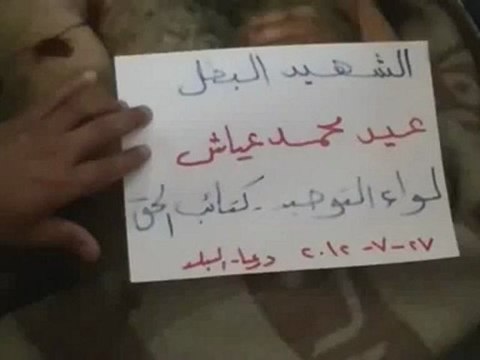 الشهيد البطل
عيد محمد عياش
لواء التوحيد - كتائب الحق
درعا - البلد ٢٧-٧-٢٠١٢